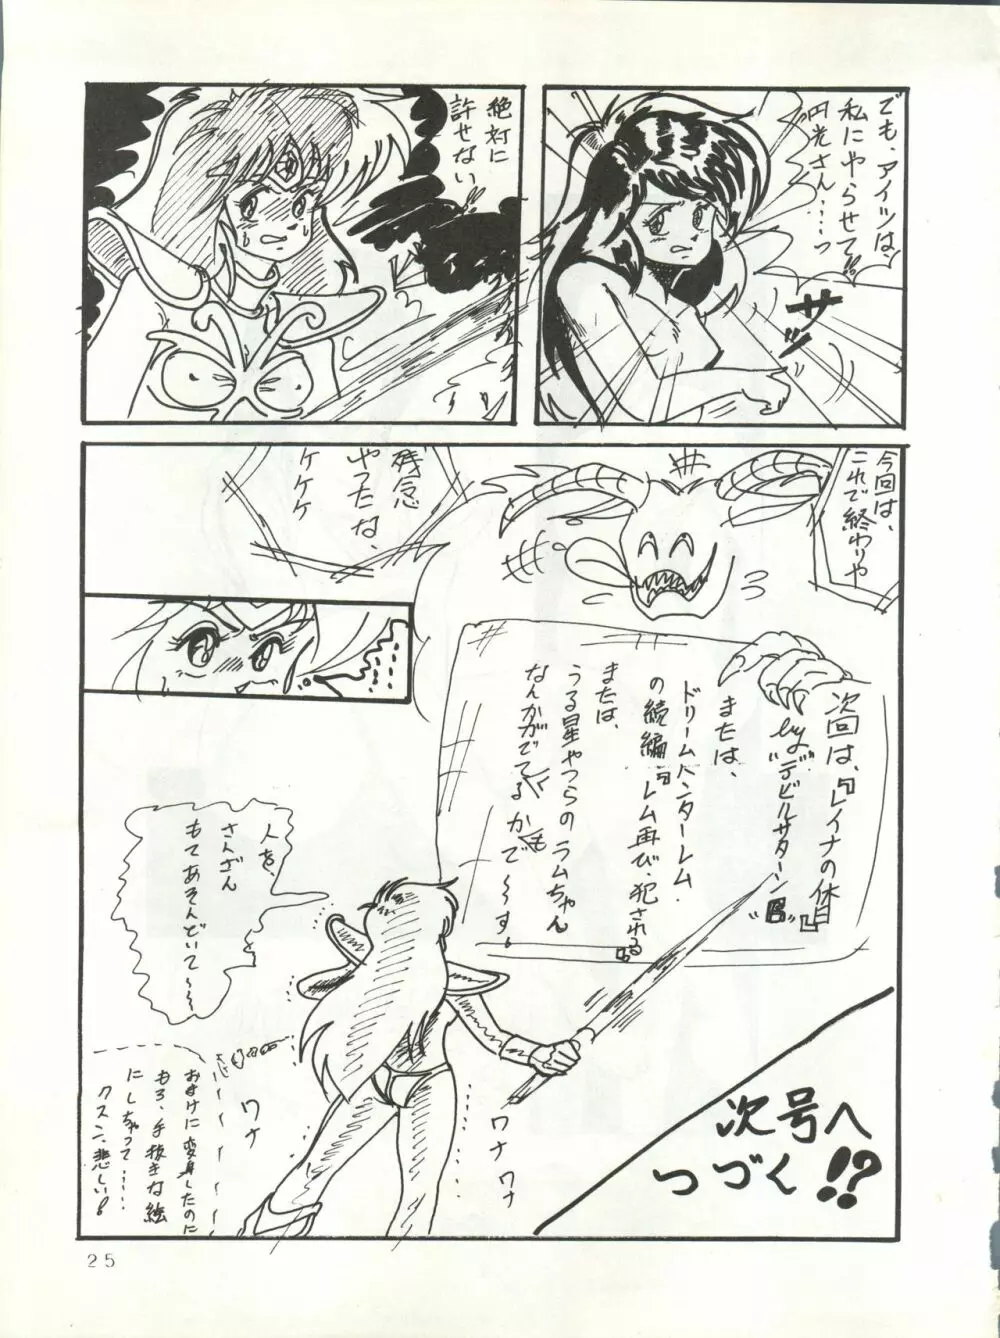 でも、アイツは、
私にやらせて!!
円光さん……っ
サッ
絶対に
許せない
今回は、
これで終わりや
残念
やったな、
ケケケ
次回は、『レイナの休日』
by "デビルサターン
または、
ドリームハンターレム
の続編『レム再び、犯される』
または、
うる星やつらのラムちゃん
なんかがでてるかもで〜〜す。
人を、
さんざん
もてあそんでいて〜〜
ワナ
ワナ
ワナ
おまけに変身したのに
もろ、手抜きな絵
にしちゃって……
クスン、悲しい!
次号へ
つづく!?
25